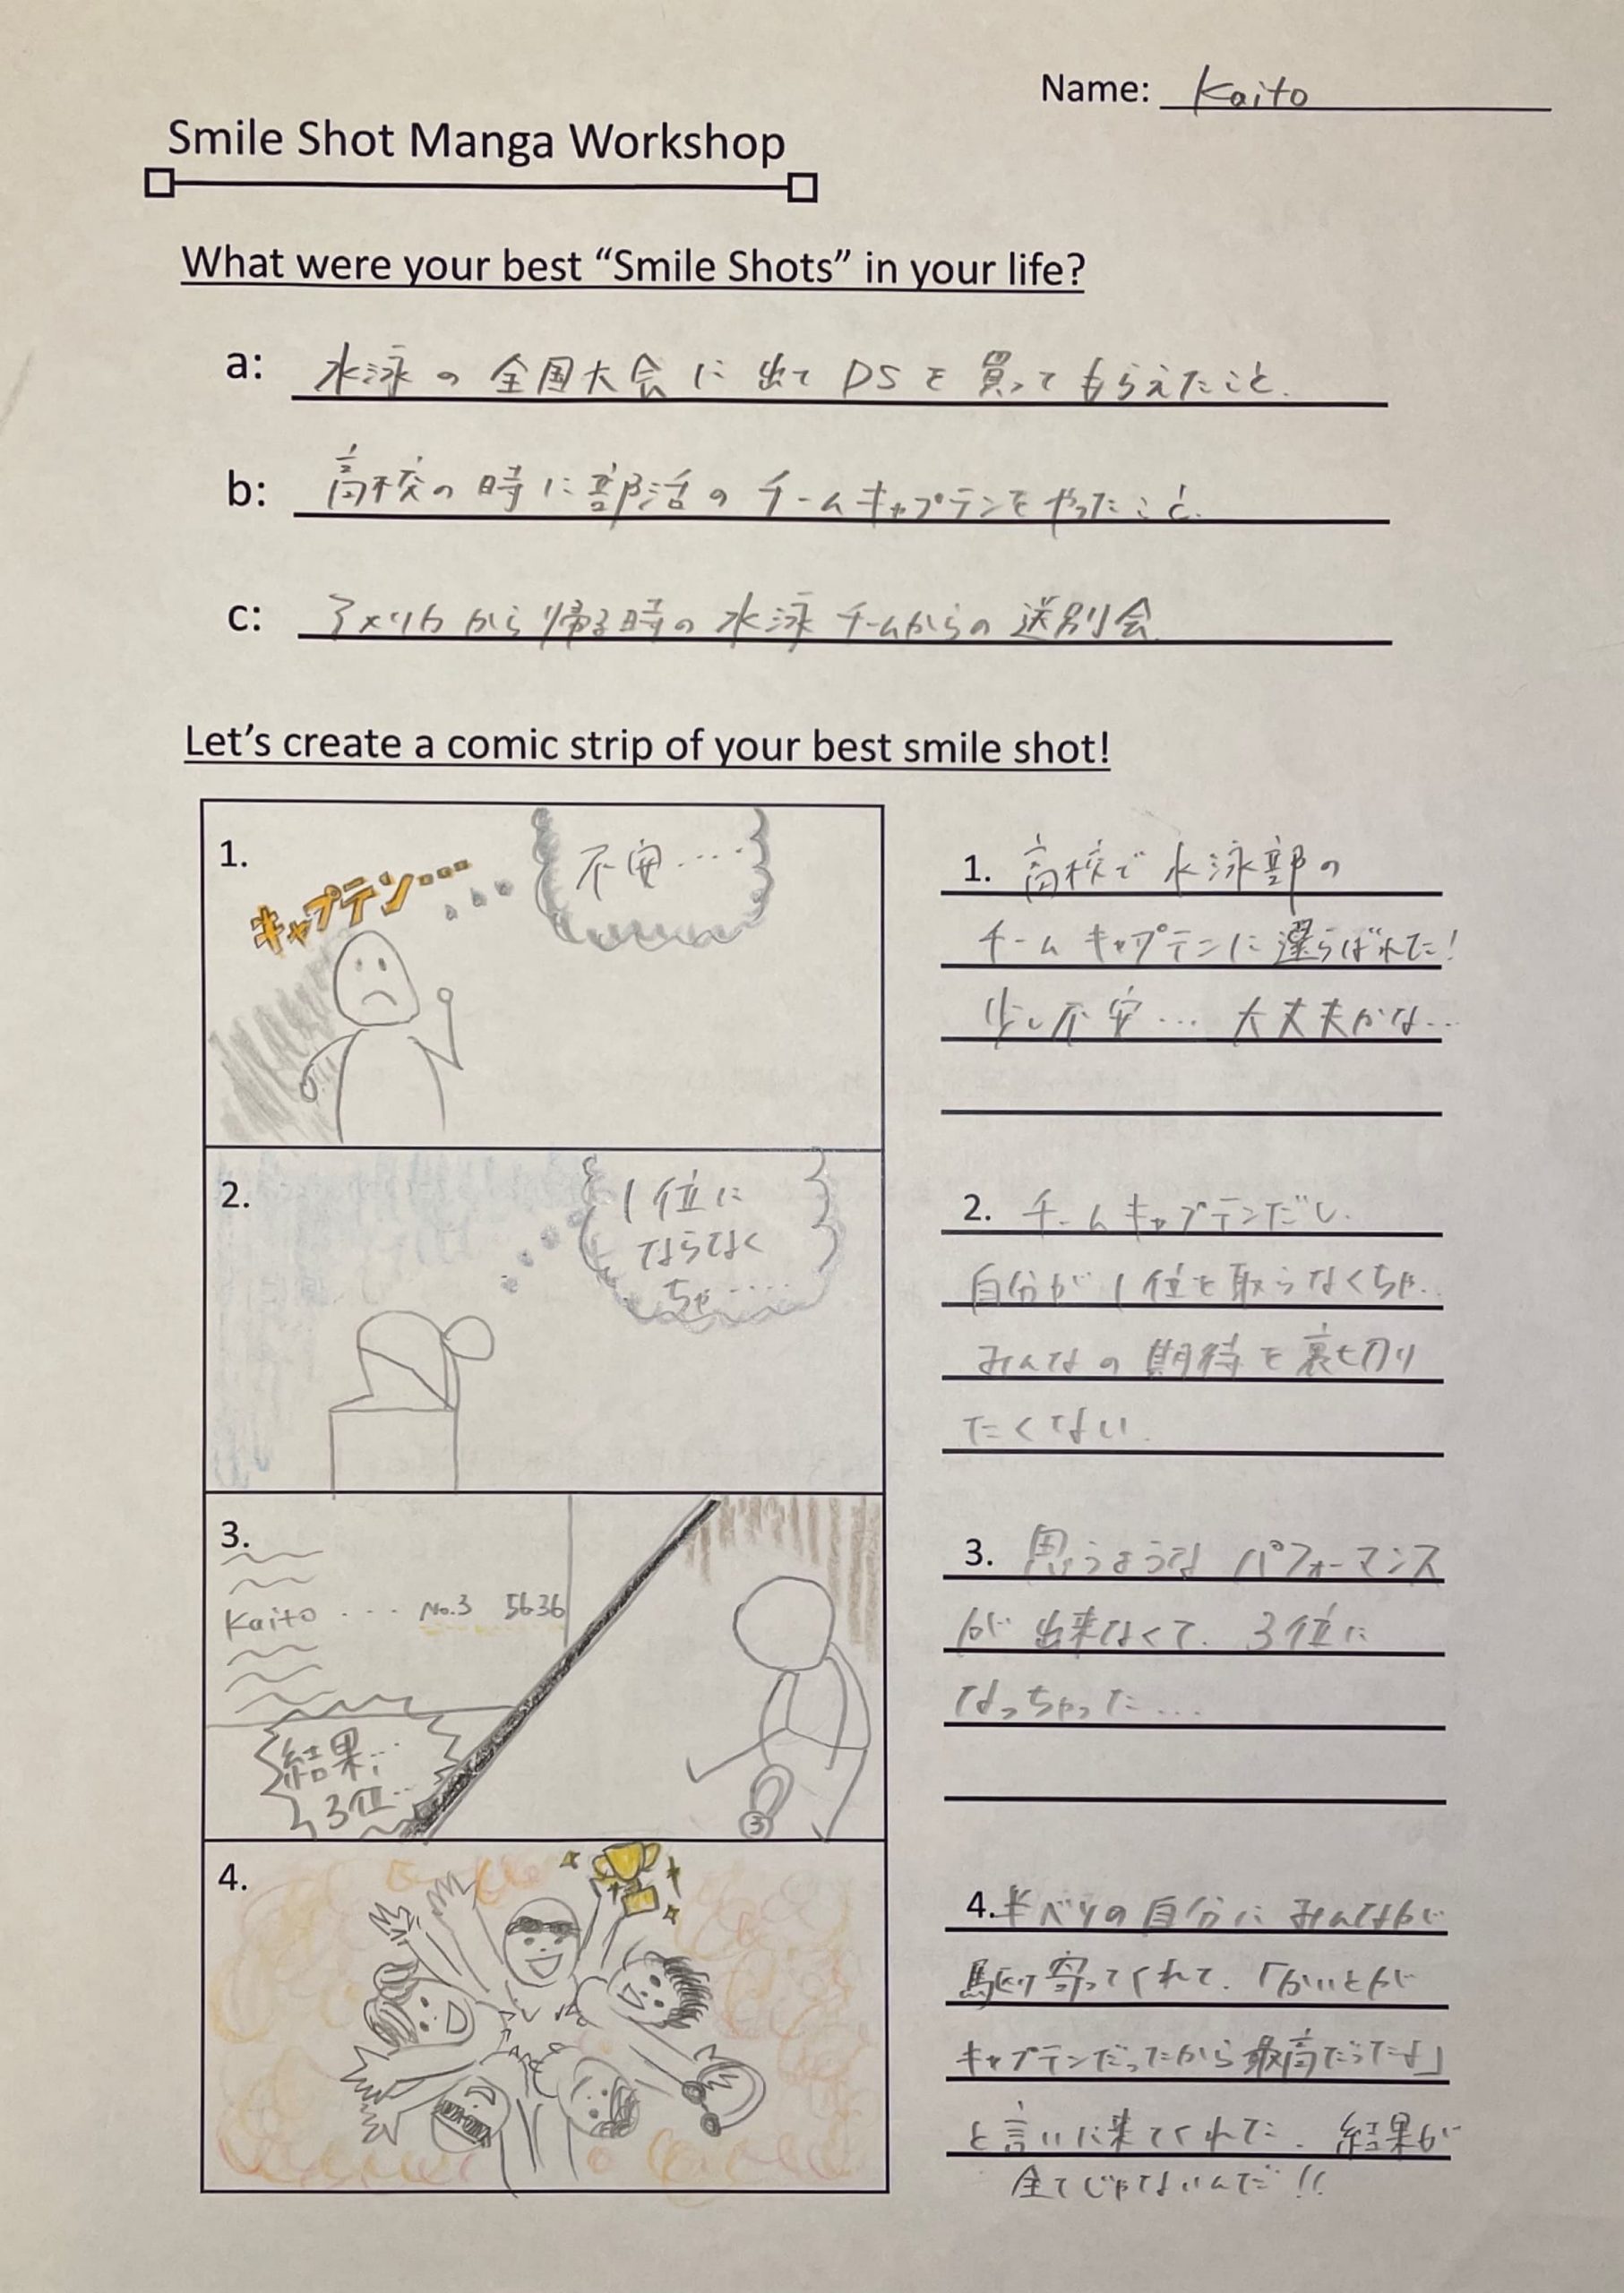 Name: Kaito
Smile Shot Manga Workshop
What were your best “Smile Shots” in your life?
a: 水泳の全国大会に出てDSを買ってもらえたこと.
b: 高校の時に部活のチームキャプテンをやったこと.
c: アメリカから帰る時の水泳チームからの送別会
Let’s create a comic strip of your best smile shot!
1.
キャプテン…
不安....
1. 高校で水泳部の
チームキャプテンに選らばれた!
少し不安… 大丈夫かな…
2.
1位に
ならなく
ちゃ....
2. チームキャプテンだし.
自分が1位を取らなくちゃ..
みんなの期待を裏切り
たくない.
3.
Kaito .... No.3 5636
結果...
3位...
③
3. 思うような パフォーマンス
が出来なくて. 3位に
なっちゃった...
4.
4. 半ベソの自分にみんなが
駆け寄ってくれて.「かいとが
キャプテンだったから最高だったよ」
と言いに来てくれた. 結果が
全てじゃないんだ!!